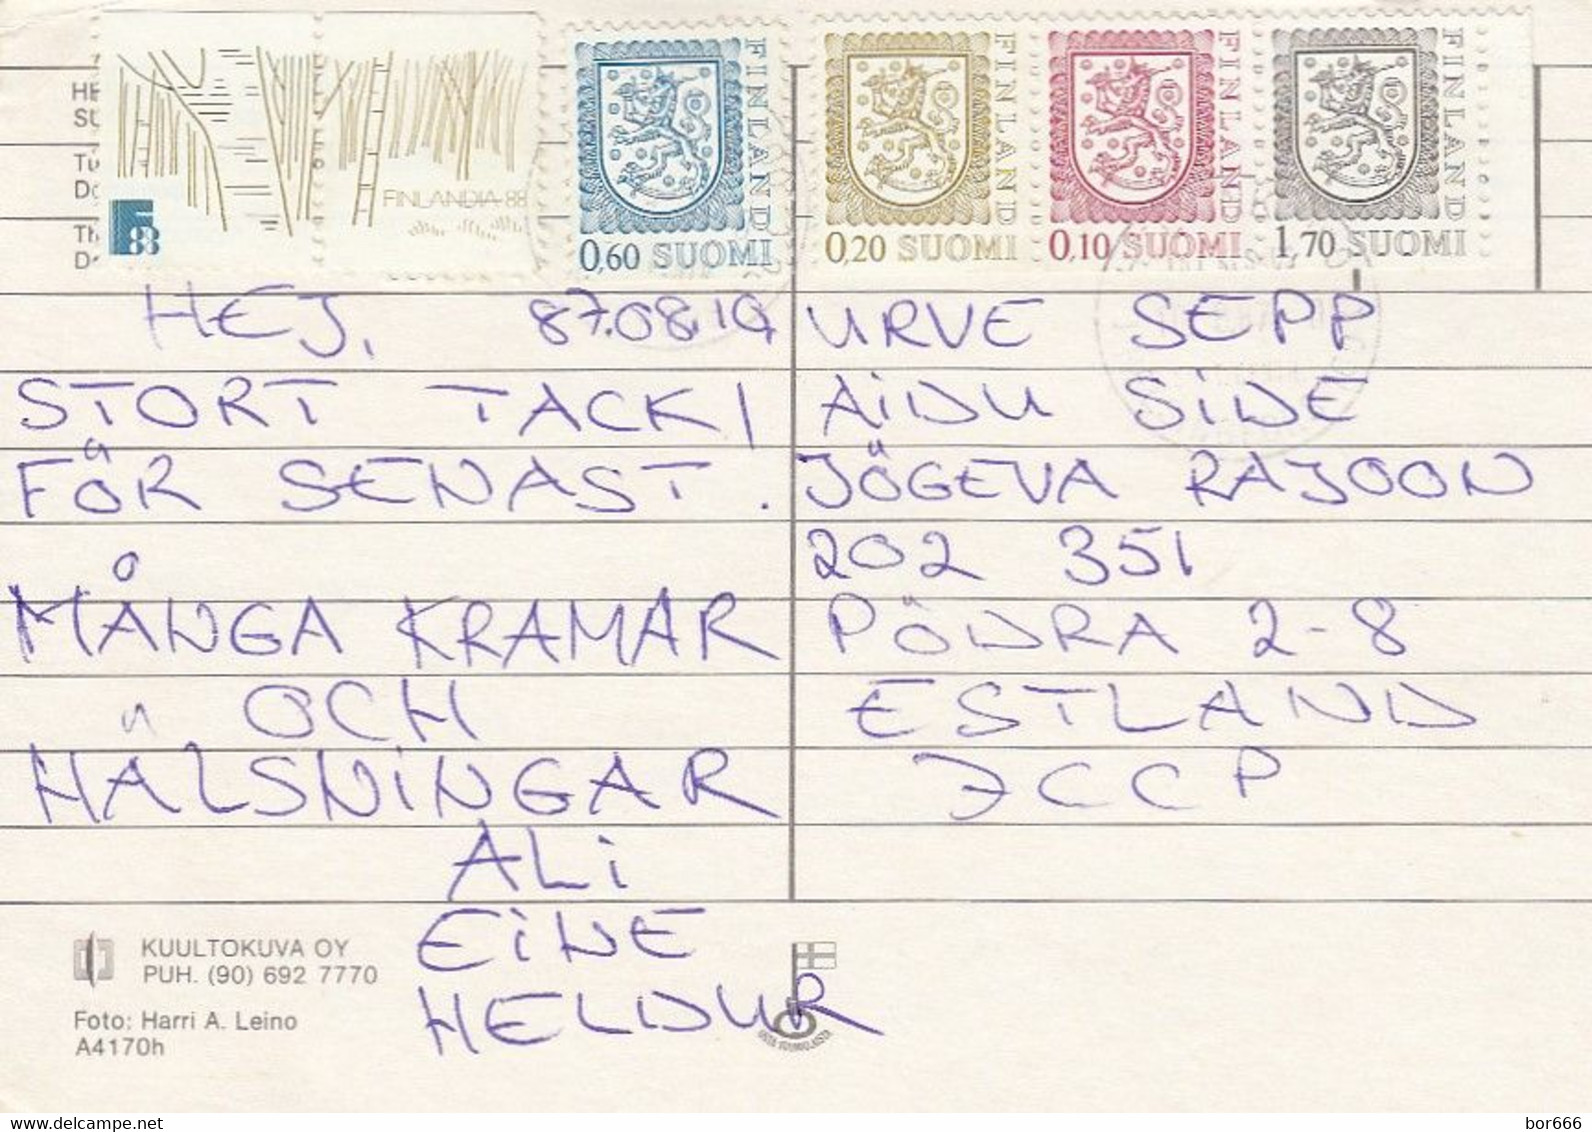 HE
SU
Tu
Do
Th
De
FINLANDIA-88
88
FINLAND
0,60 SUOMI
FINLAND
0,20 SUOMI
FINLAND
0,10 SUOMI
FINLAND
1,70 SUOMI
HEJ, 87.08.19
STORT TACK!
FÖR SENAST.
MÅNGA KRAMAR
OCH
HÄLSNINGAR
ALI
EINE
HELDUR
URVE SEPP
AIDU SIDE
JÖGEVA RAJOON
202 351
PÖDRA 2-8
ESTLAND
ЭCCP
KUULTOKUVA OY
PUH. (90) 692 7770
Foto: Harri A. Leino
A4170h
delcampe.net
bor666